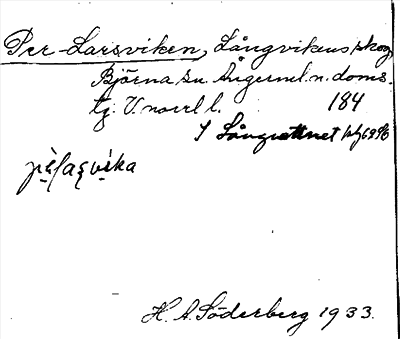 Per-Larsviken, Långvikens skog
Björna sn. Ångerml. n. doms.
tg. V. norrl l. 184
I Långvattnet
H. A. Söderberg 1933.